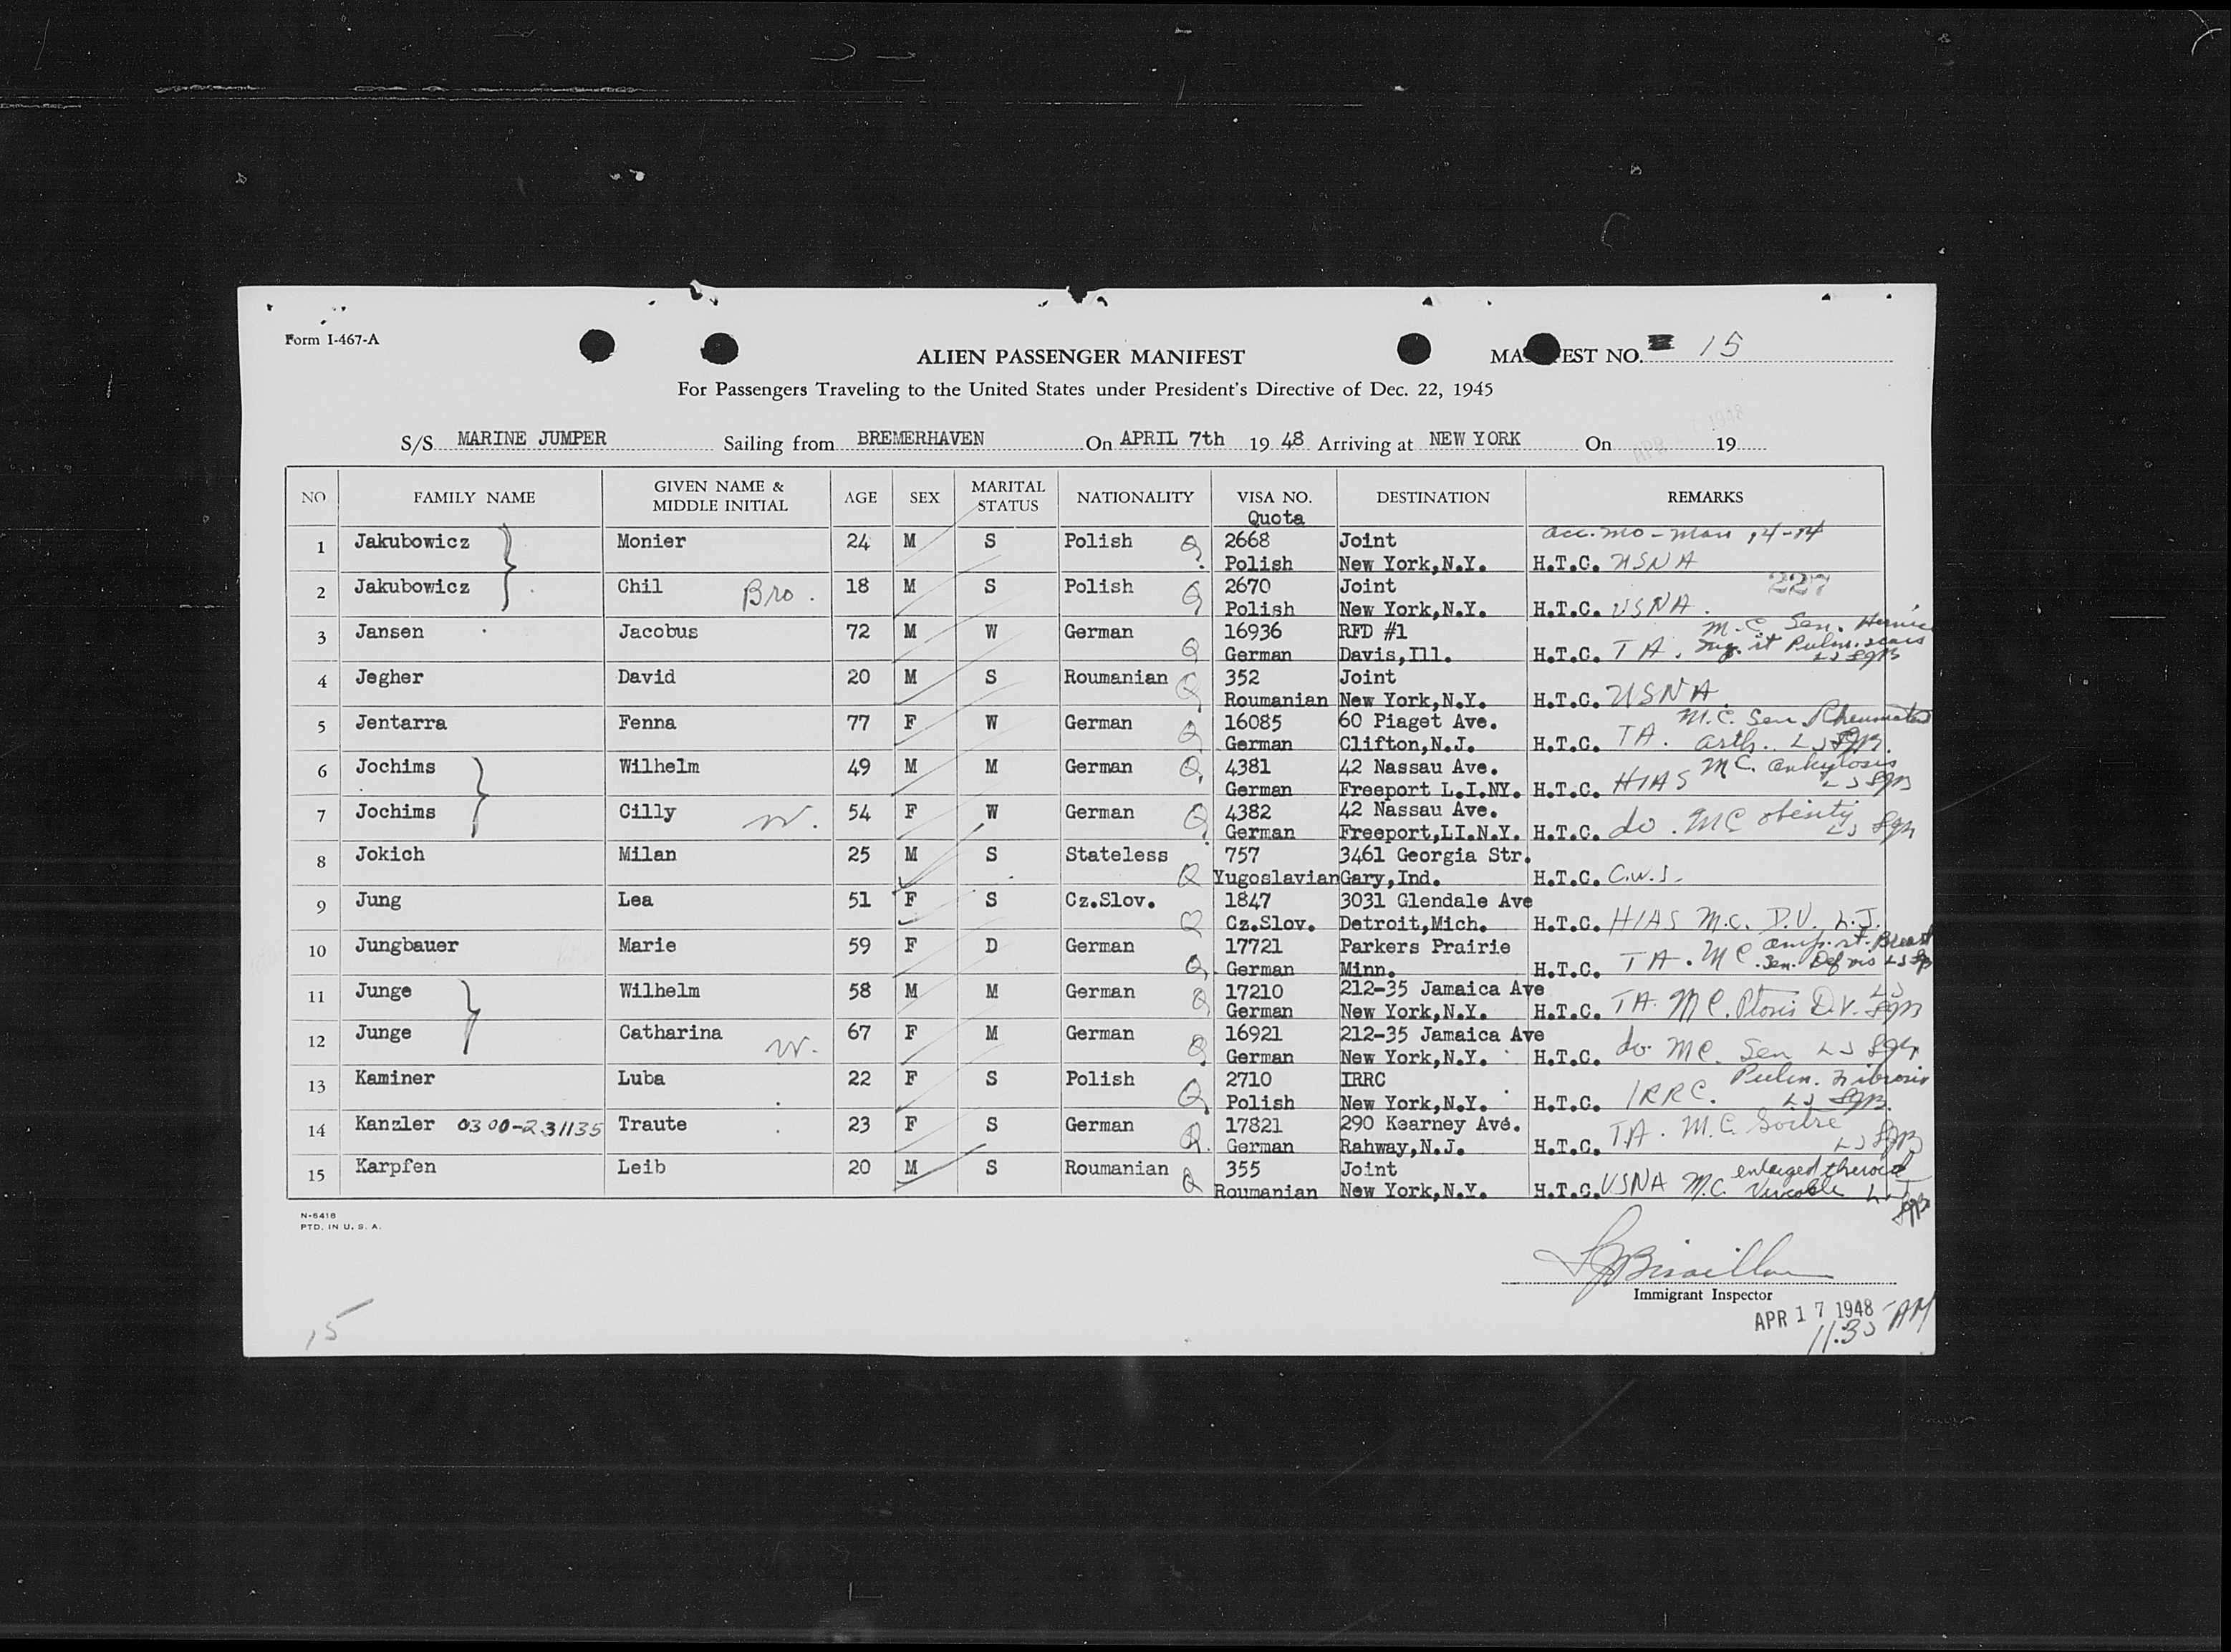 Form I-467-A
ALIEN PASSENGER MANIFEST
MA EST NO. 15
For Passengers Traveling to the United States under President's Directive of Dec. 22, 1945
S/S MARINE JUMPER Sailing from BREMERHAVEN On APRIL 7th 19 48 Arriving at NEW YORK On APR 17 1948 19
NO FAMILY NAME GIVEN NAME & MIDDLE INITIAL AGE SEX MARITAL STATUS NATIONALITY VISA NO. Quota DESTINATION REMARKS
1 Jakubowicz Monier 24 M S Polish Q 2668 Joint
Polish New York,N.Y. H.T.C. USNA
2 Jakubowicz Chil Bro. 18 M S Polish Q 2670 Joint 227
Polish New York,N.Y. H.T.C. USNA.
3 Jansen Jacobus 72 M W German Q 16936 RFD #1 M.C. Sen. Hernia
German Davis,Ill. H.T.C. TA. Ing. rt Pulm. scars LJ SJB
4 Jegher David 20 M S Roumanian Q 352 Joint
Roumanian New York,N.Y. H.T.C. USNA.
5 Jentarra Fenna 77 F W German Q 16085 60 Piaget Ave. M.C. Sen Rheumatoid
German Clifton,N.J. H.T.C. TA. arth. LJ SJB.
6 Jochims Wilhelm 49 M M German Q 4381 42 Nassau Ave. MC. ankylosis
German Freeport L.I.NY. H.T.C. HIAS LJ SJB
7 Jochims Cilly W. 54 F W German Q 4382 42 Nassau Ave.
German Freeport,LI.N.Y. H.T.C. do. MC obesity LJ SJB
8 Jokich Milan 25 M S Stateless Q 757 3461 Georgia Str.
Yugoslavian Gary,Ind. H.T.C. C.W.S.
9 Jung Lea 51 F S Cz.Slov. Q 1847 3031 Glendale Ave
Cz.Slov. Detroit,Mich. H.T.C. HIAS M.C. D.V. L.J.
10 Jungbauer Marie 59 F D German Q. 17721 Parkers Prairie amp. rt. Breast
German Minn. H.T.C. TA. MC. Sen. Def vis LJ SJB
11 Junge Wilhelm 58 M M German Q 17210 212-35 Jamaica Ave LJ
German New York,N.Y. H.T.C. TA. MC. Ptosis D.V. SJB
12 Junge Catharina W. 67 F M German Q 16921 212-35 Jamaica Ave
German New York,N.Y. H.T.C. do. MC. Sen LJ SJB
13 Kaminer Luba 22 F S Polish Q 2710 IRRC Pulm. Fibrosis
Polish New York,N.Y. H.T.C. IRRC. LJ SJB.
14 Kanzler 0300-231135 Traute 23 F S German Q. 17821 290 Kearney Ave.
German Rahway,N.J. H.T.C. T.A. M.C. Goitre LJ SJB
15 Karpfen Leib 20 M S Roumanian Q 355 Joint enlarged
Roumanian New York,N.Y. H.T.C. USNA M.C. LJ SJB
N-6418
PTD. IN U. S. A.
Immigrant Inspector
APR 17 1948 AM
11:30
15